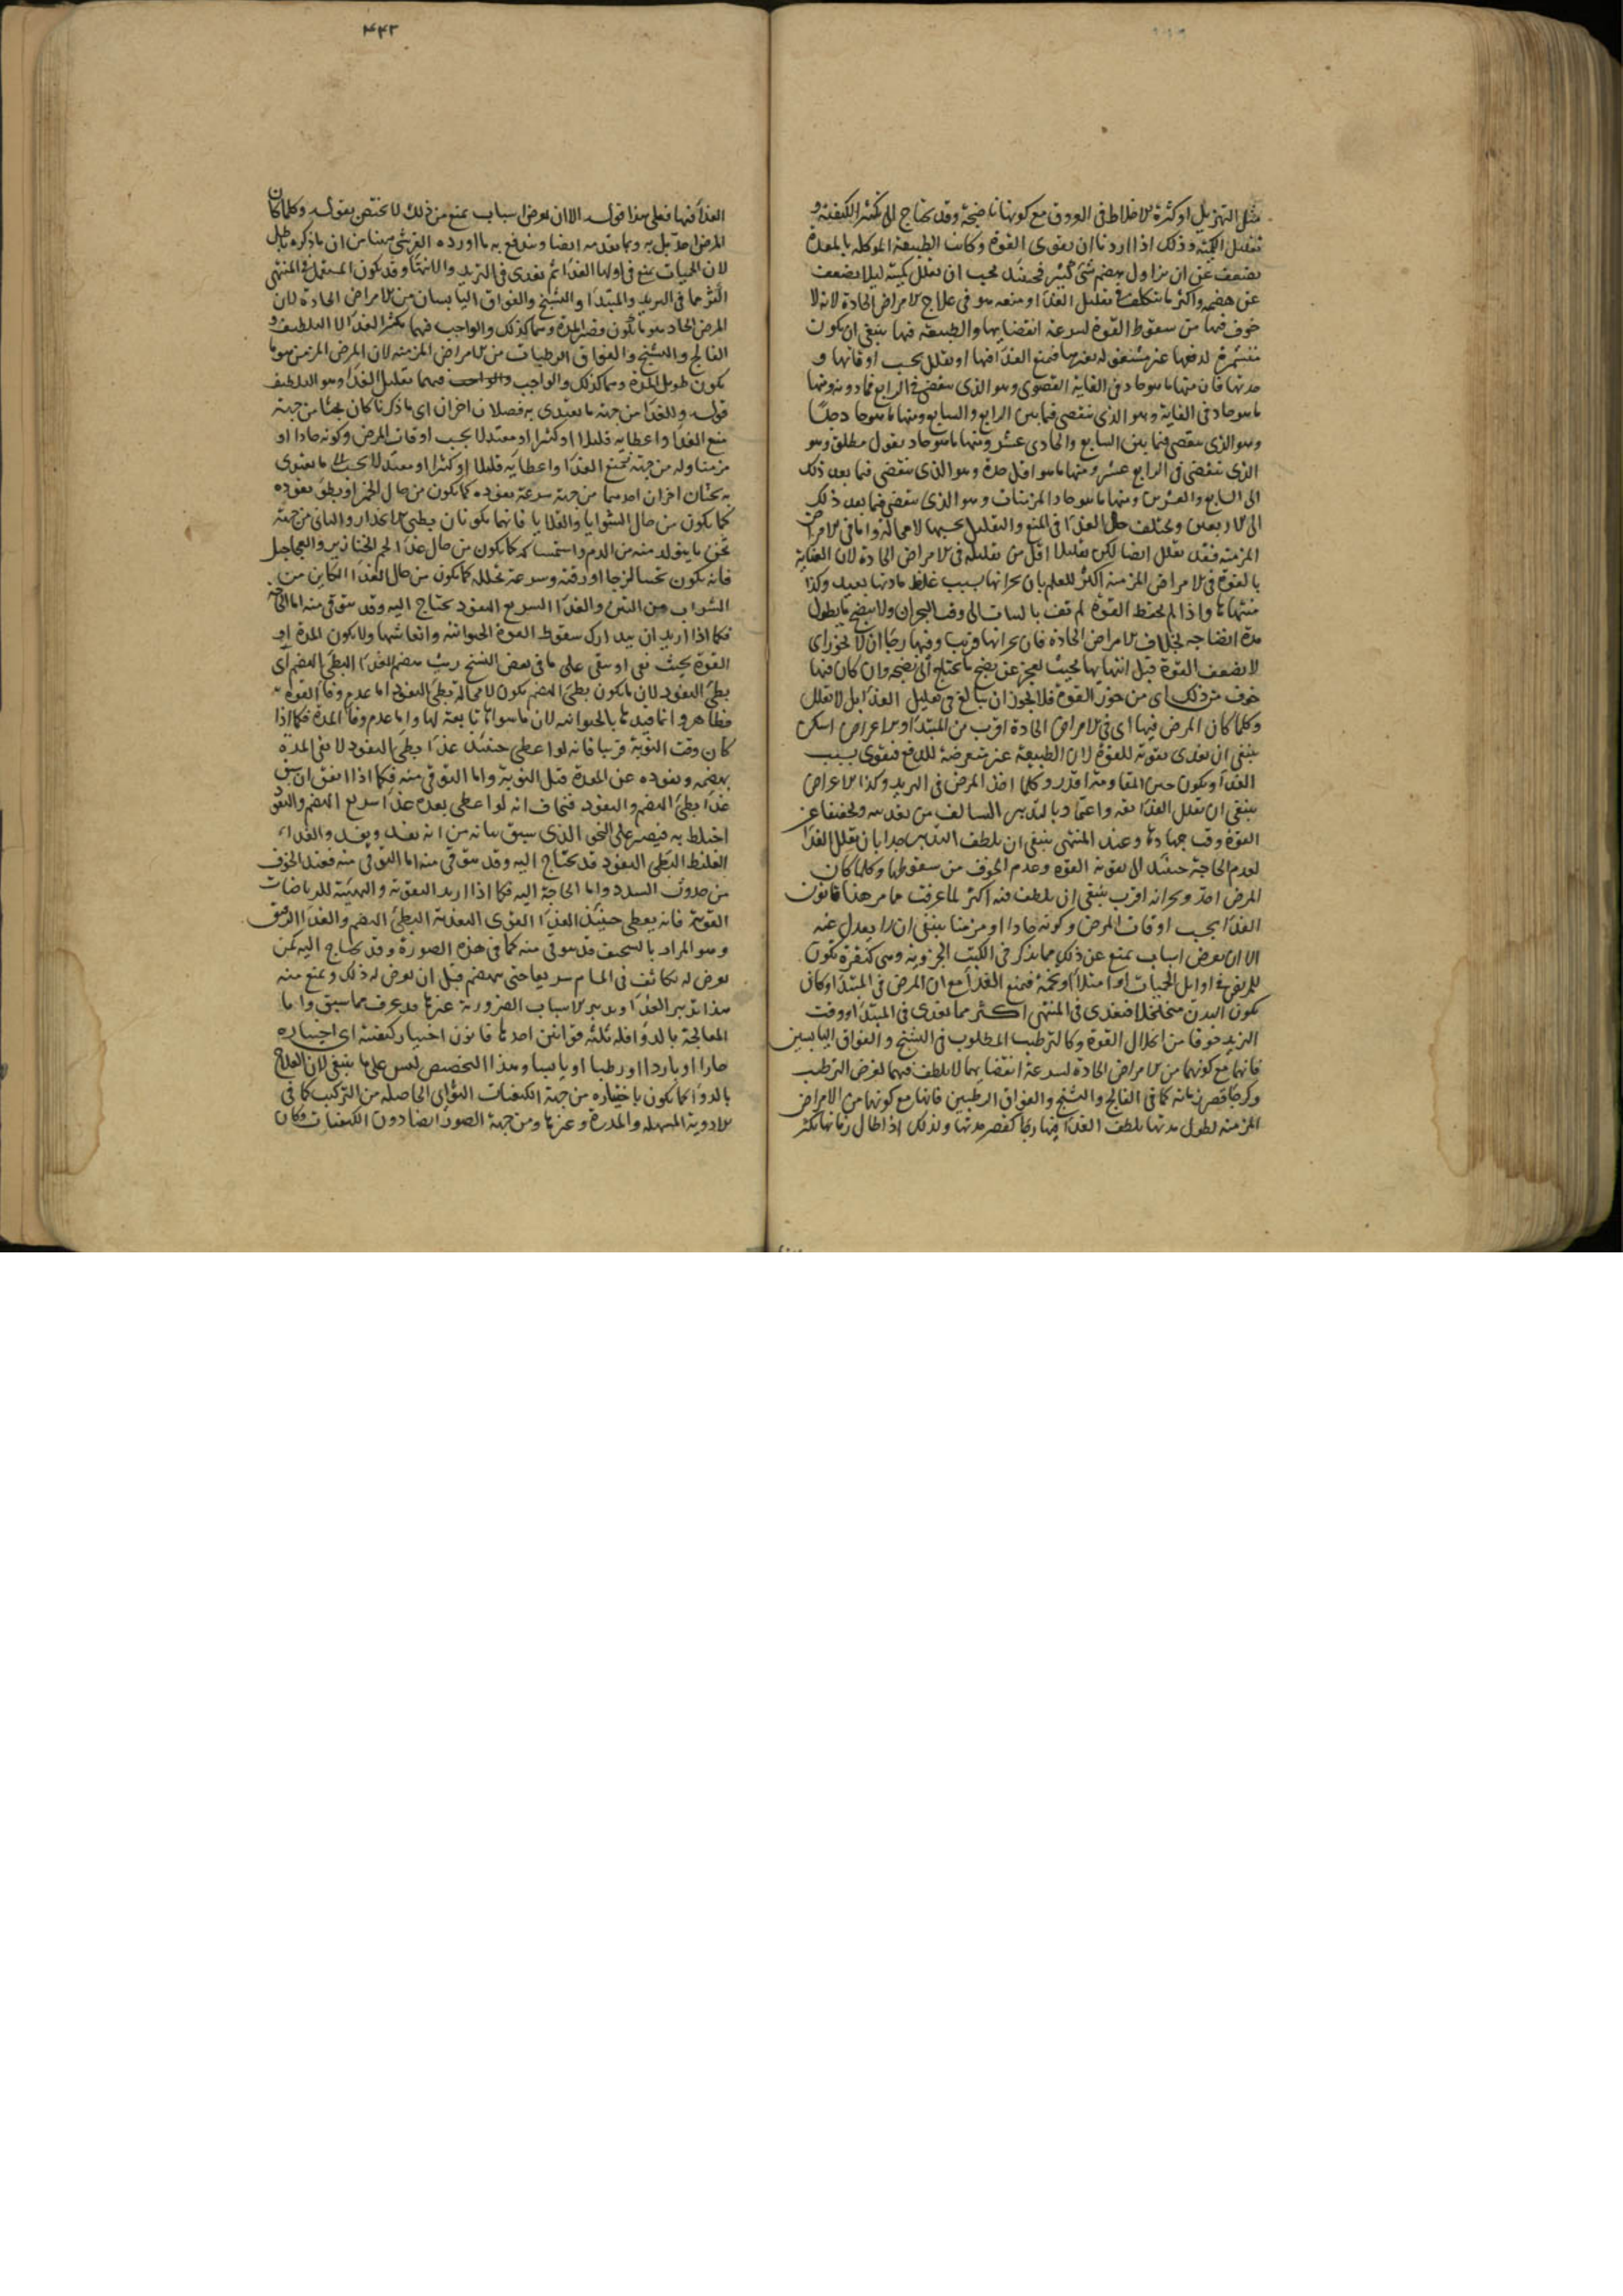 مثل التهزيل او كثرة الاخلاط فى العروق مع كونها ناضجة وقد يحتاج الى تكثير الكيفية و
تقليل الكمية وذلك اذا اردنا ان نقوى القوة وكانت الطبيعة الموكلة بالمعدة
تضعف عن ان تزاول هضم شئ كثير فحينئذ يجب ان نقلل كميته ليلا يضعف
عن هضمه واكثر ما يتكلف فى تقليل الغذا او منعه هو فى علاج الامراض الحادة لانه لا
خوف فيها من سقوط القوة لسرعة انقضايها والطبيعة فيها ينبغى ان يكون
متشمرة لدفعها غير مشتغلة بغيرها فيمنع الغذا فيها او يقلل بحسب اوقاتها و
حدتها فان منها ما هو حاد فى الغاية القصوى وهو الذى ينقضى فى الرابع فما دونه ومنها
ما هو حاد فى الغاية وهو الذى ينقضى فيما بين الرابع والسابع ومنها ما هو حاد جدا
وهو الذى ينقضى فيما بين السابع والحادى عشر ومنها ما هو حاد بقول مطلق وهو
الذى ينقضى فى الرابع عشر ومنها ما هو اقل حدة وهو الذى ينقضى فيما بعد ذلك
الى السابع والعشرين ومنها ما هو حاد المزمنات وهو الذى ينقضى فيما بعد ذلك
الى الاربعين ويختلف حال الغذا فى المنع والتقليل بحسبها لا محالة واما فى الامراض
المزمنة فقد يقلل ايضا لكن تقليلا اقل من تقليله فى الامراض الحادة لان العناية
بالقوة فى الامراض المزمنة اكثر للعلم بان بحرانها بسبب غلظ مادتها بعيد وكذا
منتهاها واذا لم يحفظ القوة لم تف بالثبات الى وقت البحران ولا بنضج ما يطول
مدة انضاجه بخلاف الامراض الحادة فان بحرانها قريب وفيها رجا ان لا يخور اى
لا يضعف القوة قبل انتهايها بحيث يعجز عن نضج ما يحتاج الى نضجه وان كان فيها
خوف من ذلك اى من خور القوة فلا يجوز ان يبالغ فى تقليل الغذا بل لا يقلل
وكلما كان المرض فيها اى فى الامراض الحادة اقرب من المبتدا والاعراض اسكن
ينبغى ان يغذى تقوية للقوة لان الطبيعة غير متعرضة للدفع فتقوى بسبب
الغذا ويكون حين المقاومة اقدر وكلما اخذ المرض فى التزيد وكذا الاعراض
ينبغى ان يقلل الغذا ثقة واعتمادا بالتدبير السالف من تغذيته وتخفيفا عن
القوة وقت جهادها وعند المنتهى ينبغى ان يلطف التدبير جدا بان يقلل الغذا
لعدم الحاجة حينئذ الى تقوية القوة وعدم الخوف من سقوطها وكلما كان
المرض احد وبحرانه اقرب ينبغى ان يلطف فيه اكثر لما عرفت مما مر هذا قانون
الغذا بحسب اوقات المرض وكونه حادا او مزمنا ينبغى ان لا يعدل عنه
الا ان يعرض اسباب تمنع عن ذلك مما يذكر فى الكتب الجزوية وهى كثيرة تكون
للمريض فى اوايل الحميات امتلا او تخمة فيمنع الغذا مع ان المرض فى المبتدا وكان
يكون البدن متخلخلا فيغذى فى المنتهى اكثر مما يغذى فى المبتدا ووقت
التزيد خوفا من انحلال القوة وكالترطيب المطلوب فى التشنج والفواق اليابسين
فانهما مع كونهما من الامراض الحادة لسرعة انقضايهما لا يلطف فيهما لغرض الترطيب
وكرجا قصر زمانه كما فى الفالج والتشنج والفواق الرطبين فانها مع كونها من الامراض
المزمنة لطول مدتها يلطف الغذا فيها رجا لقصر مدتها ولذلك اذا طال زمانها يكثر
۴۴۳
الغذا فيها فعلى هذا قوله الا ان يعرض اسباب تمنع من ذلك لا يختص بقوله وكلما كان
المرض احد بل به وبما تقدمه ايضا ويندفع به ما اورده القرشى هاهنا من ان ما ذكره باطل
لان الحميات يمنع فى اولها الغذا ثم يغذى فى التزيد والانتها وقد يكون المستعمل فى المنتهى
اكثر مما فى التزيد والمبتدا والتشنج والفواق اليابسان من الامراض الحادة لان
المرض الحاد هو ما يكون قصير المدة وهما كذلك والواجب فيهما تكثير الغذا لا التلطيف و
الفالج والتشنج والفواق الرطبات من الامراض المزمنة لان المرض المزمن هو ما
يكون طويل المدة وهما كذلك والواجب فيهما تقليل الغذا وهو التلطيف
قوله وللغذا من جهة ما يغتذى به فصلان اخران اى ما ذكرنا كان بحثا من جهة
منع الغذا واعطايه قليلا او كثيرا او معتدلا بحسب اوقات المرض وكونه حادا او
مزمنا وله من جهة تمنع الغذا واعطايه قليلا او كثيرا او معتدلا بحسب ما يغتذى
به بحثان اخران احدهما من جهة سرعة نفوذه كما يكون من حال الخمر او بطؤ نفوذه
كما يكون من حال الشوايا والقلايا فانهما يكونان بطئى الانحدار والثانى من جهة
ثخن ما يتولد منه من الدم واستمساكه كما يكون من حال غذا لحم الخنازير والعجاجيل
فانه يكون ثخينا لزجا او رقته وسرعة تحلله كما يكون من حال الغذا الكاين من
الشراب ومن التين والغذا السريع النفوذ يحتاج اليه وقد يتوقى منه اما الحاجة
فكما اذا اريد ان يتدارك سقوط القوة الحيوانية وانعاشها ولا يكون المدة او
القوة بحيث تفى او يبقى على ما فى بعض النسخ ريث هضم الغذا البطئ الهضم اى
بطئ النفوذ لان ما يكون بطئ الهضم يكون لا محالة بطئ النفوذ اما عدم وفا القوة به
فظاهر وانما قيدها بالحيوانية لان ما سواها تابعة لها واما عدم وفا المدة فكما اذا
كان وقت النوبة قريبا فانه لو اعطى حينئذ غذا بطئ النفوذ لا تفى المدة
بهضمه ونفوذه عن المعدة قبل النوبة واما التوقى منه فكما اذا اتفق ان سبق
غذا بطئ الهضم والنفوذ فيخاف انه لو اعطى بعده غذا سريع الهضم والنفوذ
اختلط به فيصير على النحو الذى سبق بيانه من انه يفسد ويفسد والغذا
الغليظ البطئ النفوذ قد يحتاج اليه وقد يتوقى منه اما التوقى منه فعند الخوف
من حدوث السدد واما الحاجة اليه فكما اذا اريد التقوية والتهيئة للرياضات
القوية فانه يعطى حينئذ الغذا القوى التغذية البطئ الهضم والغذا الرقيق
وهو المراد بالسخيف قد يتوقى منه كما فى هذه الصورة وقد يحتاج اليه كمن
يعرض له تكاثف فى المسام سريعا حتى ينهضم قبل ان يعرض له ذلك ويمنع منه
هذا تدبير الغذا وتدبير الاسباب الضرورية غيرها قد يعرف مما سبق واما
المعالجة بالدوا فله ثلثة قوانين احدها قانون اختيار كيفيته اى اختياره
حارا او باردا او رطبا او يابسا وهذا التخصيص ليس على ما ينبغى لان العلاج
بالدوا كما يكون باختياره من جهة الكيفيات الثوانى الحاصلة من التركيب كما فى
الادوية المسهلة والمدرة وغيرها ومن جهة الصور ايضا دون الكيفيات فكان